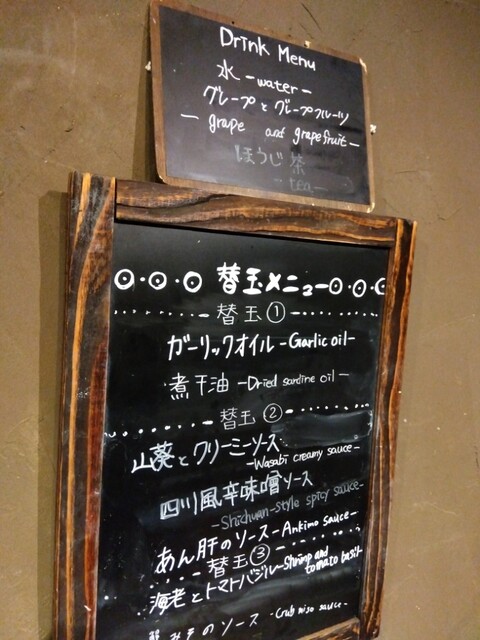 Drink Menu
水 -water-
グレープとグレープフルーツ
- grape and grapefruit -
ほうじ茶
- tea -
替玉メニュー
替玉①
ガーリックオイル -Garlic oil-
煮干油 -Dried sardine oil-
替玉②
山葵とクリーミーソース
-Wasabi creamy sauce-
四川風辛味噌ソース
-Shichuan-style spicy sauce-
あん肝のソース -Ankimo sauce-
替玉③
海老とトマトバジル -Shrimp and
tomato basil-
みそのソース -Crab miso sauce-